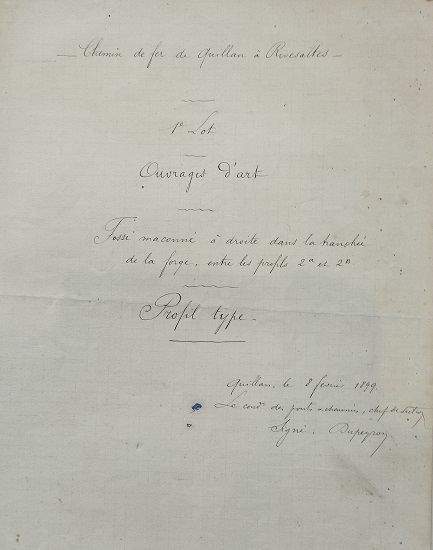 Chemin de fer de Quillan à Rivesaltes
1er Lot
Ouvrages d'art
Fossé maçonné à droite dans la tranchée
de la forge, entre les profils 2a et 2B
Profil type
Quillan, le 8 février 1899
Le cond. des ponts &chaussées, chef de
Signé: Dupeyron